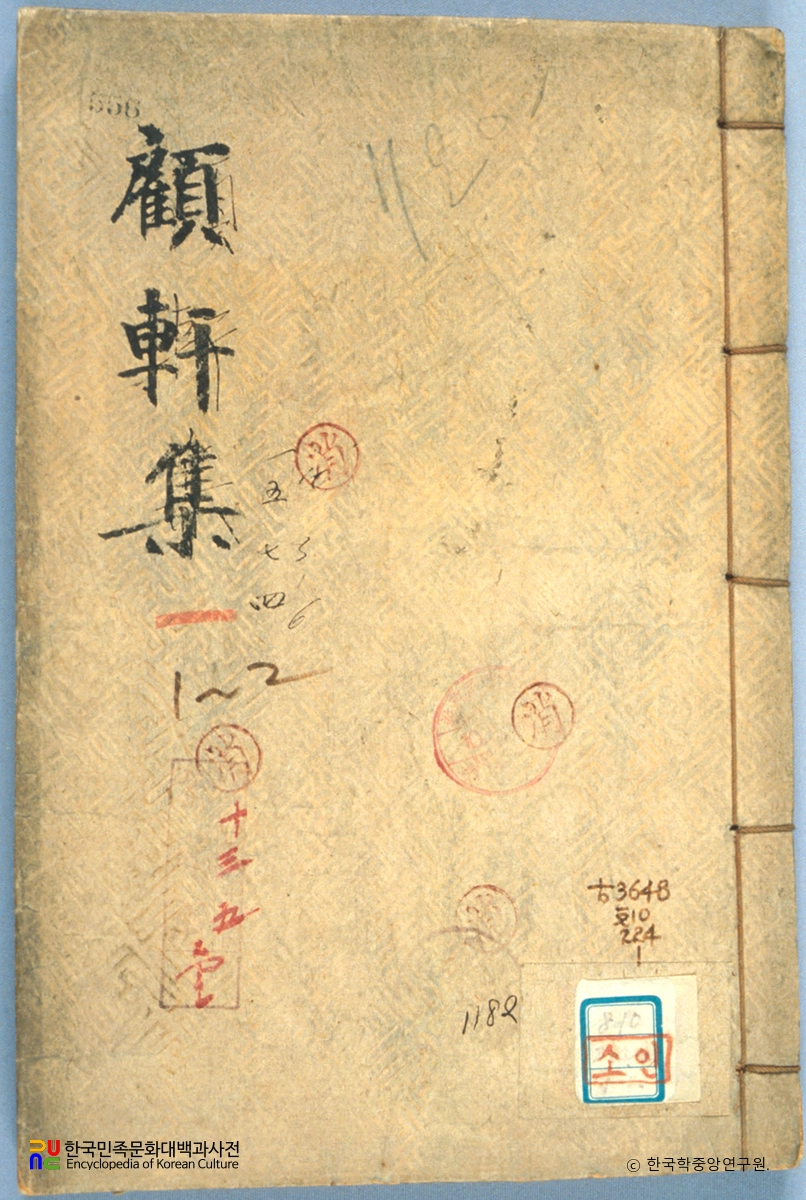 558
1120
顧軒集
一
1~2
一五七四
消
消
消
十三
五
古3648
文10
224
1
1182
810
소인
한국민족문화대백과사전
Encyclopedia of Korean Culture
ⓒ 한국학중앙연구원.